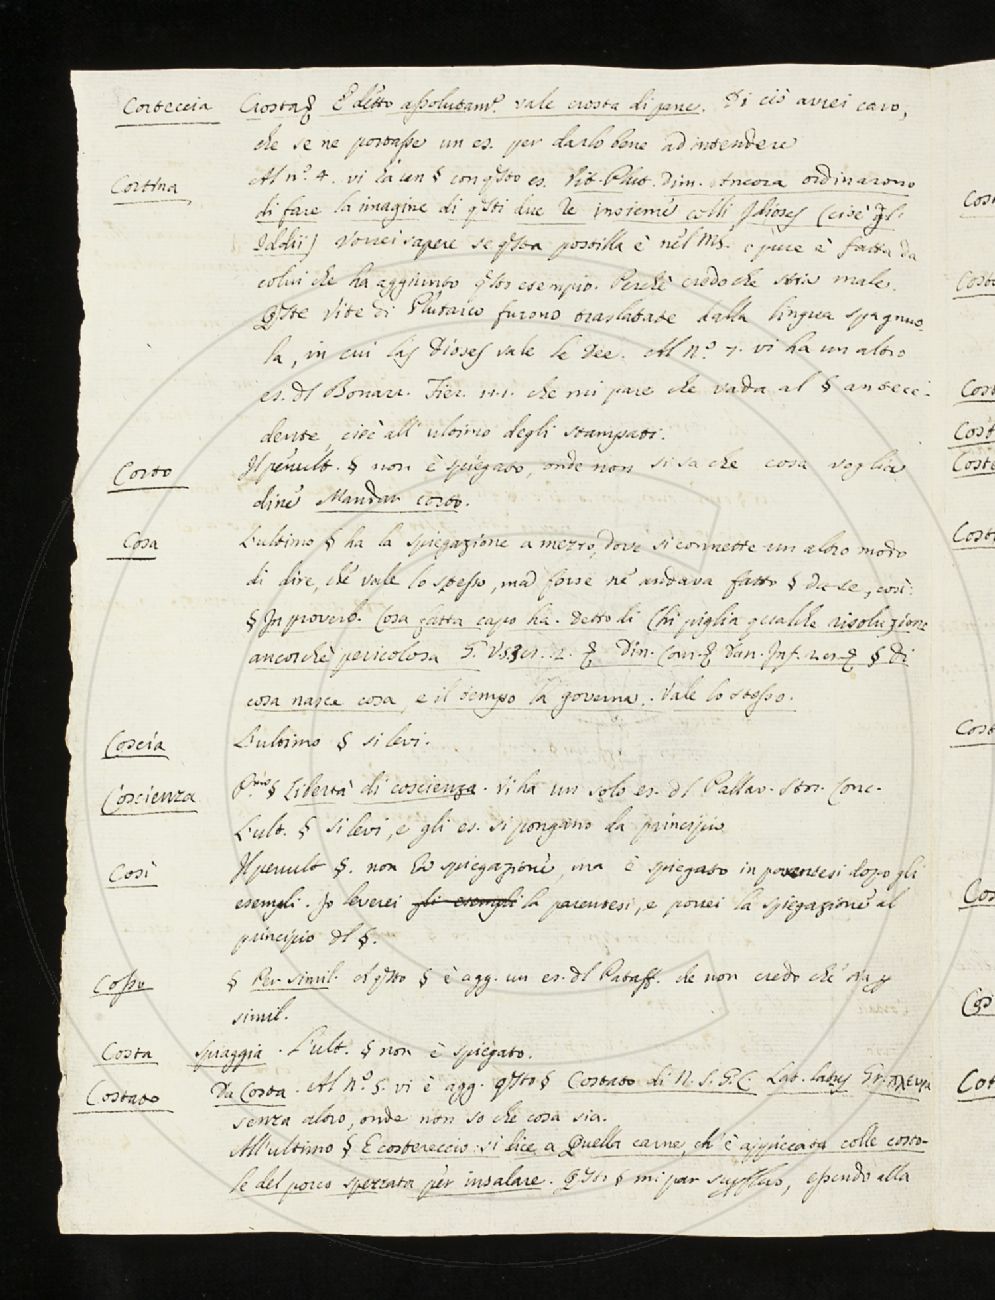 Corteccia Crosta § E detto assolutamte. vale crosta di pane. Di ciò avrei caro,
che se ne portasse un es. per darlo bene ad intendere
Cortina Al n.° 4. vi ha un § con qsto es. Vit. Plut. dim. Ancora ordinarono
di fare la imagine di qsti due Re insieme colli Idioses (cioè gl'
Iddii) Vorrei sapere se qsta postilla è nel MS. o pure è fatta da
colui che ha aggiunto qsto esempio. Perchè credo che stia male.
Qste Vite di Plutarco furono traslatate dalla lingua spagnuo-
la, in cui las Dioses vale le Dee. Al n.° 7. vi ha un altro
es. dl Bonarr. Fier. che mi pare che vada al § antece-
dente, cioè all' ultimo degli stampati.
Corto Il penult. § non è spiegato, onde non si sa che cosa voglia
dire Mandar corto.
Cosa L'ultimo § ha la spiegazione a mezzo, dove si connette un altro modo
di dire, che vale lo stesso, ma forse ne andava fatto § da se, così:
§ In proverb. Cosa fatta capo ha. detto di Chi piglia qualche risoluzione
ancorchè pericolosa Din. Com. § Dan. Inf. § Di
cosa nasce cosa, e il tempo la governa. Vale lo stesso.
Coscia L'ultimo § si levi.
Coscienza § Libertà di coscienza. Vi ha un solo es. dl Pallav. Stor. Conc.
L'ult. § si levi, e gli es. si pongano da principio
Così Il penult §. non ha spiegazione, ma è spiegato in parentesi dopo gli
esempli. Io leverei gli esempli la parentesi, e porrei la spiegazione al
principio dl §.
Cosso § Per simil. A qsto § è agg. un es. dl Pataff. che non credo che
simil.
Costa spiaggia. L'ult. § non è spiegato.
Costato Da Costa. Al n.° 5. vi è agg. qsto § Costato di N. S. G. C. Lat. latus Gr. πλευρα
senza altro, onde non so che cosa sia.
All'ultimo § E costereccio si dice a Quella carne, ch' è appiccata colle costo-
le del porco spezzata per insalare. Qsto § mi par superfluo, essendo alla